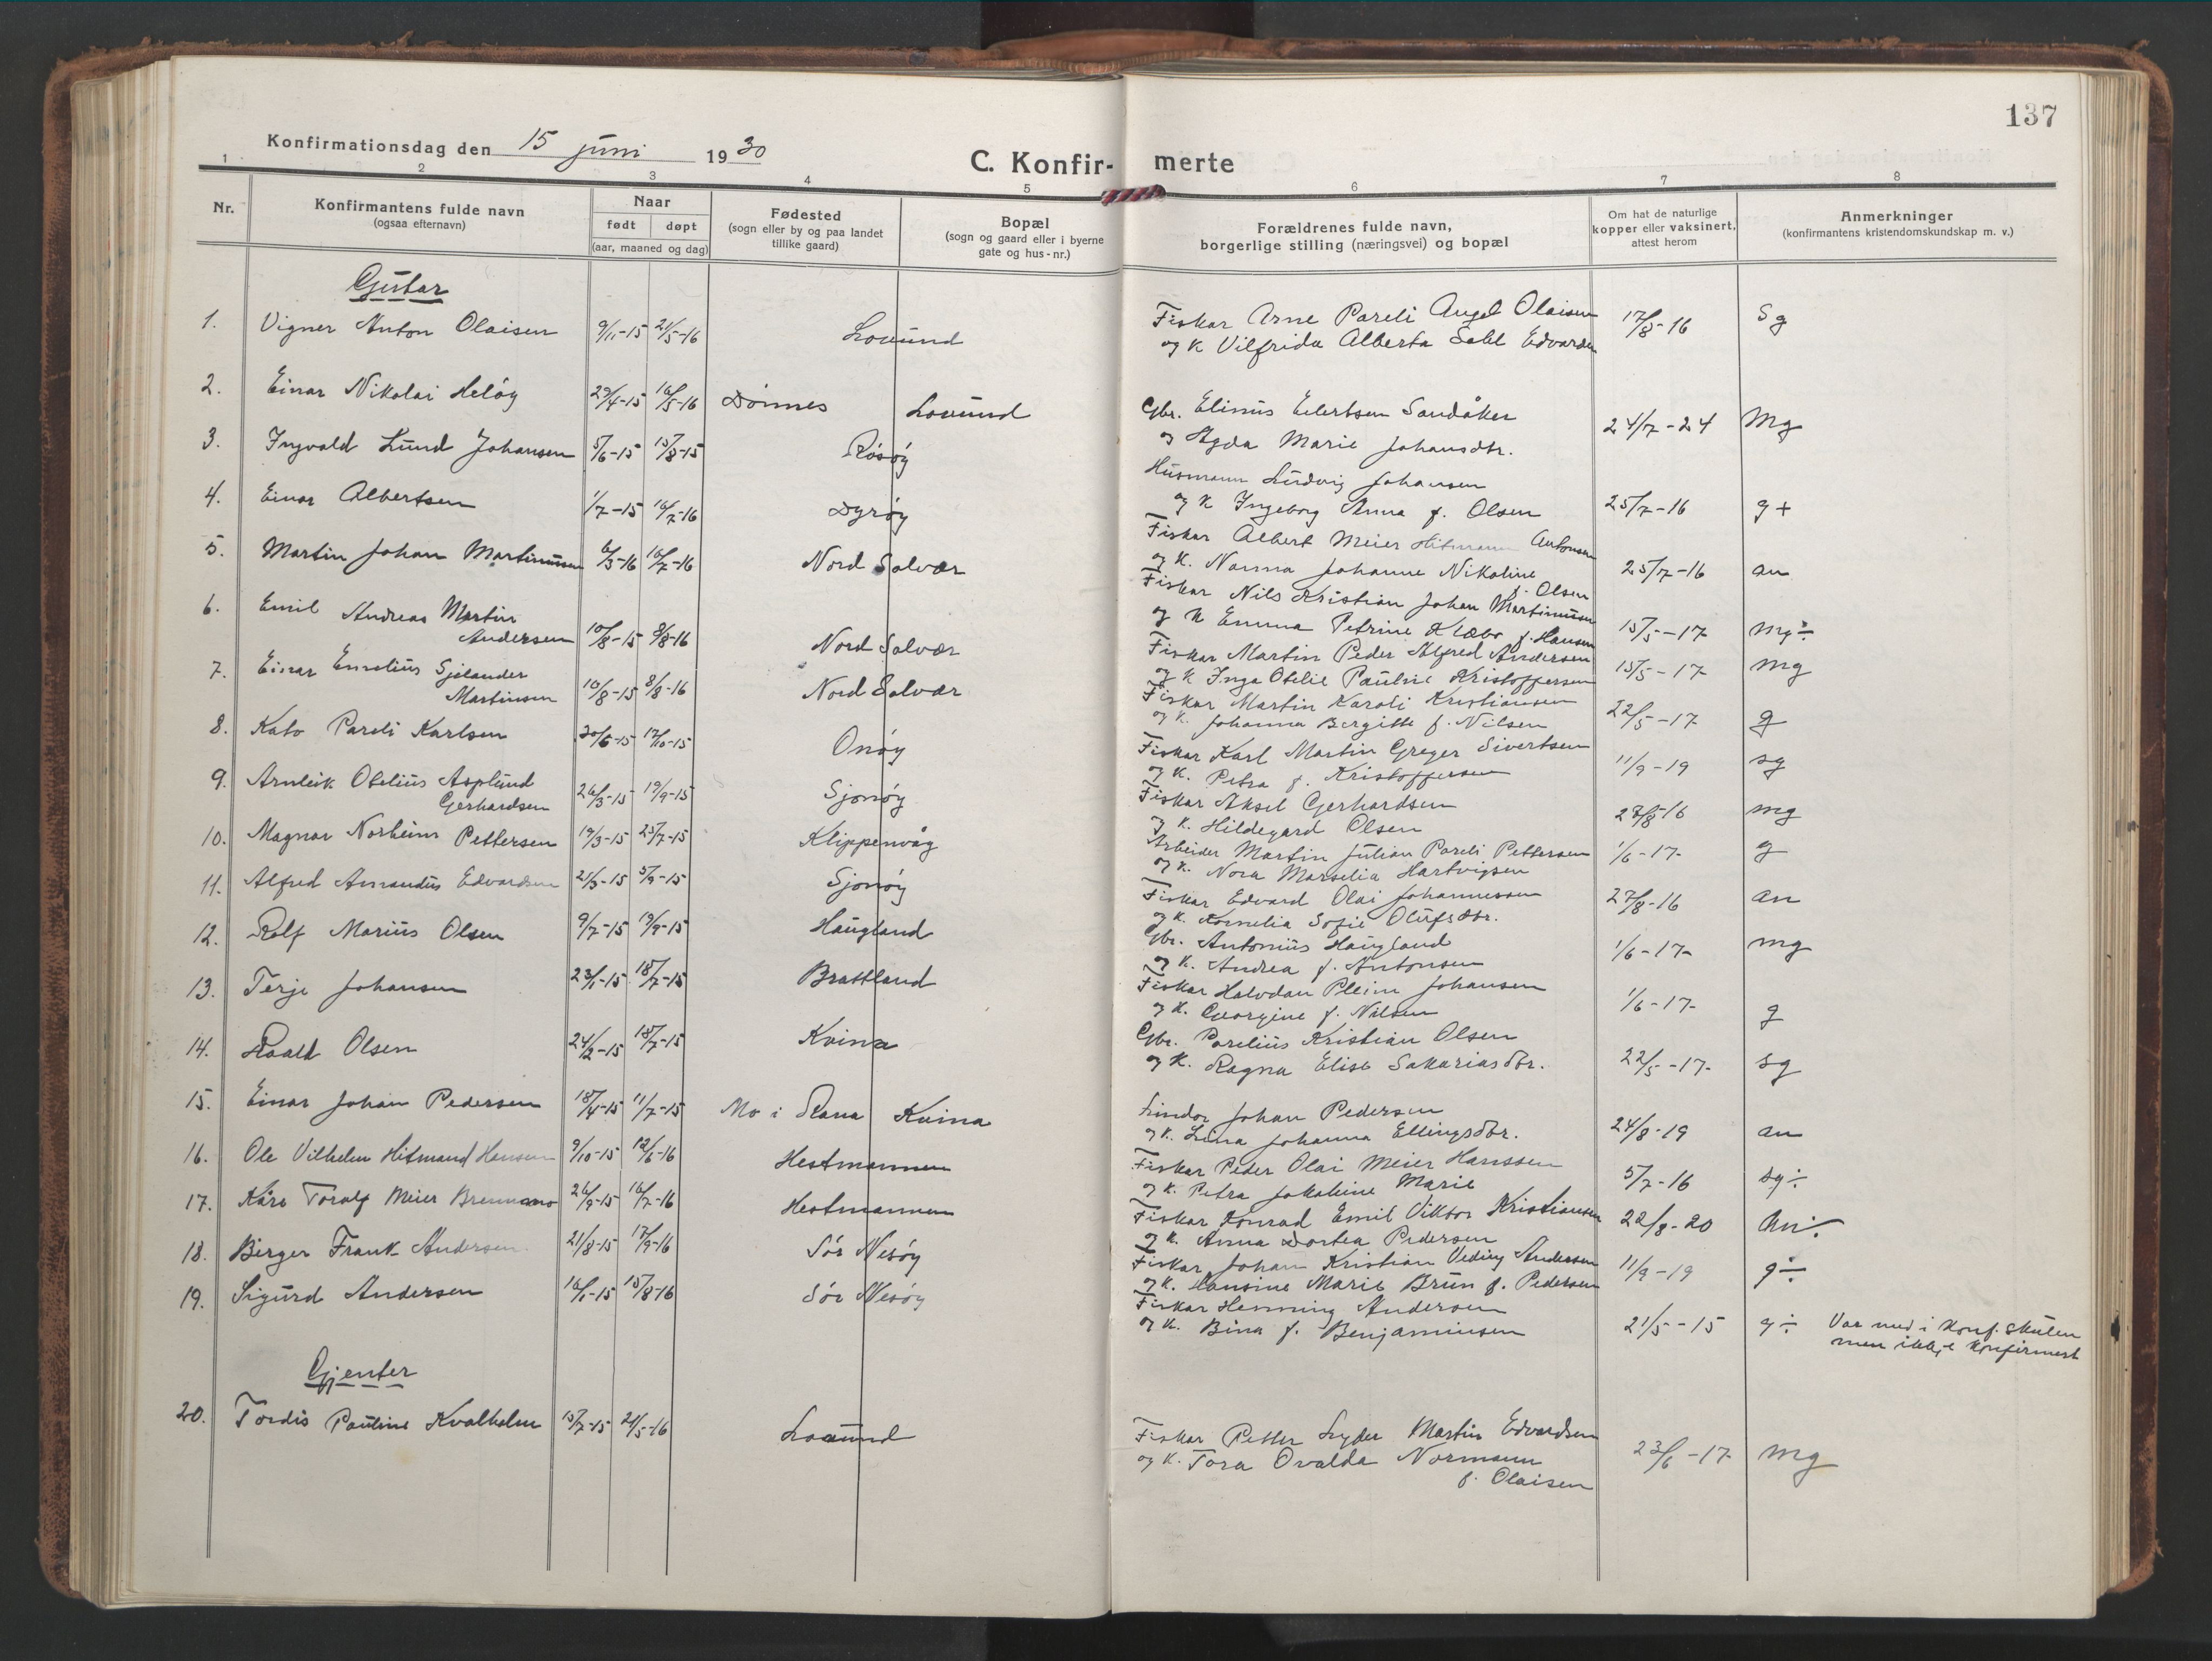 137
Konfirmationsdag den 15 juni 1930
C. Konfir- merte
1 2 3 4 5 6 7 8
Nr.
Konfirmantens fulde navn
(ogsaa efternavn)
Naar
født døpt
(aar, maaned og dag)
Fødested
(sogn eller by og paa landet
tillike gaard)
Bopæl
(sogn og gaard eller i byerne
gate og hus-nr.)
Forældrenes fulde navn,
borgerlige stilling (næringsvei) og bopæl
Om hat de naturlige
kopper eller vaksinert,
attest herom
Anmerkninger
(konfirmantens kristendomskundskap m. v.)
Gutar
1. Vigner Anton Olaisen 9/11-15 21/5-16 Lovund
Fiskar Arne Pareli Angel Olaisen 17/8-16 Sg
og K Vilfrida Alberta Edvardsen
2. Einar Nikolai Heløy 29/4-15 16/5-16 Dönnes Lovund
Gbr. Elinus Eilertsen Sandåker 24/7-24 Mg
og Agda Marie Johansdtr.
3. Ingvald Lund Johansen 5/6-15 15/8-15 Rösöy
Husmann Ludvig Johansen
og K Ingeborg Anna f. Olsen 25/7-16 g+
4. Einar Albertsen 1/7-15 16/7-16 Dyröy
Fiskar Albert Meier Hitmann Antonsen
og K. Nanna Johanne Nikoline 25/7-16 an
f. Olsen
5. Martin Johan Martinussen 6/3-16 16/7-16 Nord Solvær
Fiskar Nils Kristian Johan Martinussen
og K Emma Petrine Klæbo f. Hansen 15/5-17 mg÷
6. Emil Andreas Martin
Andersen 10/8-15 8/8-16 Nord Solvær
Fiskar Martin Peder Alfred Andersen 15/5-17 mg
og K Inga Otelie Pauline Kristoffersen
7. Einar Emelius Sjølander
Martinsen 10/8-15 8/8-16 Nord Solvær
Fiskar Martin Karoli Kristiansen 22/5-17 g
og K. Johanna Bergitte f. Nilsen
8. Kato Pareli Karlsen 20/6-15 17/10-15 Onöy
Fiskar Karl Martin Greger Sivertsen 11/9-19 sg
og K. Petra f. Kristoffersen
9. Arnleik Otelius Asplund
Gerhardsen 26/3-15 19/9-15 Sjonöy
Fiskar Aksel Gerhardsen 27/8-16 mg
og K. Hildegard Olsen
10. Magnar Norheim Pettersen 19/3-15 25/7-15 Klippenvåg
Arbeider Martin Julian Pareli Pettersen 1/6-17- g
og K. Nora Marselia Hartvigsen
11. Alfred Amandus Edvardsen 21/3-15 5/9-15 Sjonöy
Fiskar Edvard Olai Johannessen 27/8-16 an
og K. Kornelia Sofie Olufsdtr.
12. Rolf Marius Olsen 9/7-15 19/9-15 Haugland
Gbr. Antonius Haugland 1/6-17- mg
og K. Andrea f. Antonsen
13. Terje Johansen 23/1-15 18/7-15 Brattland
Fiskar Halvdan Pleim Johansen 1/6-17- g
og K. Georgine f. Nilsen
14. Roald Olsen 24/2-15 18/7-15 Kvina
Gbr. Parelius Kristian Olsen
og K. Ragna Elise Sakariasdtr. 22/5-17- sg
15. Einar Johan Pedersen 18/4-15 11/7-15 Mo i Rana Kvina
Sindor Johan Pedersen 24/8-19 an
og K. Lina Johanna Ellingsdtr.
16. Ole Vilhelm Hitmand Hansen 9/10-15 12/6-16 Hestmannen
Fiskar Peder Olai Meier Hanssen 5/7-16 sg÷
og K. Petra Jakobine Marie
17. Kåre Toralf Meier Brennmo 26/9-15 16/7-16 Hestmannen
Fiskar Konrad Emil Viktor Kristiansen 22/8-20 An÷
og K. Anna Dortea Pedersen
18. Birger Frank Andersen 21/8-15 17/9-16 Sör Nesöy
Fiskar Johan Kristian Veding Andersen 11/9-19 g÷
og K. Hansine Marie Brun f. Pedersen
19. Sigurd Andersen 16/1-15 15/8-16 Sör Nesöy
Fiskar Henning Andersen
og K. Bina f. Benjaminsen 21/5-15 g÷ Var med i konf. skulen
men ikkje konfirmert
Gjenter
20. Tordis Pauline Kvalhelm 15/7-15 21/5-16 Lovund
Fiskar Petter Lyder Martin Edvardsen 23/6-17 mg
og K. Tora Ovalda Normann
f. Olaisen